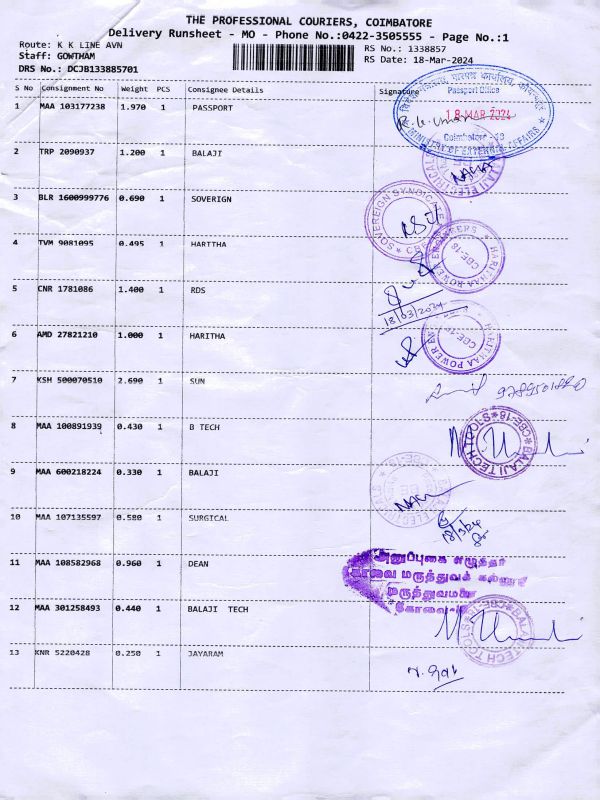 THE PROFESSIONAL COURIERS, COIMBATORE
Delivery Runsheet - MO - Phone No.:0422-3505555 - Page No.:1
Route: K K LINE AVN
RS No.: 1338857
Staff: GOWTHAM
RS Date: 18-Mar-2024
DRS No.: DCJB133885701
S No Consignment No Weight PCS Consignee Details Signature
Passport Office
1 MAA 103177238 1.970 1 PASSPORT
18 MAR 2024
Coimbatore - 18
MINISTRY OF EXTERNAL AFFAIRS
2 TRP 2090937 1.200 1 BALAJI
3 BLR 1600999776 0.690 1 SOVERIGN
SOVEREIGN SYNDICATE
4 TVM 9081095 0.495 1 HARTTHA
CBE-18
5 CNR 1781086 1.400 1 RDS
18/03/2024
6 AMD 27821210 1.000 1 HARITHA
7 KSH 500070510 2.690 1 SUN
8 MAA 100891939 0.430 1 B TECH
BALAJI TECH TOOLS CBE-18
9 MAA 600218224 0.330 1 BALAJI
10 MAA 107135597 0.580 1 SURGICAL
18/3/24
11 MAA 108582968 0.960 1 DEAN
கோவை மருத்துவக்
12 MAA 301258493 0.440 1 BALAJI TECH
13 KNR 5220428 0.250 1 JAYARAM